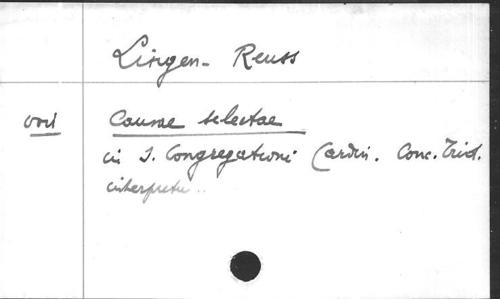 Lingen- Reuss
voir Causae selectae
in S. Congregatione Cardin. Conc. Trid.
interpretu..